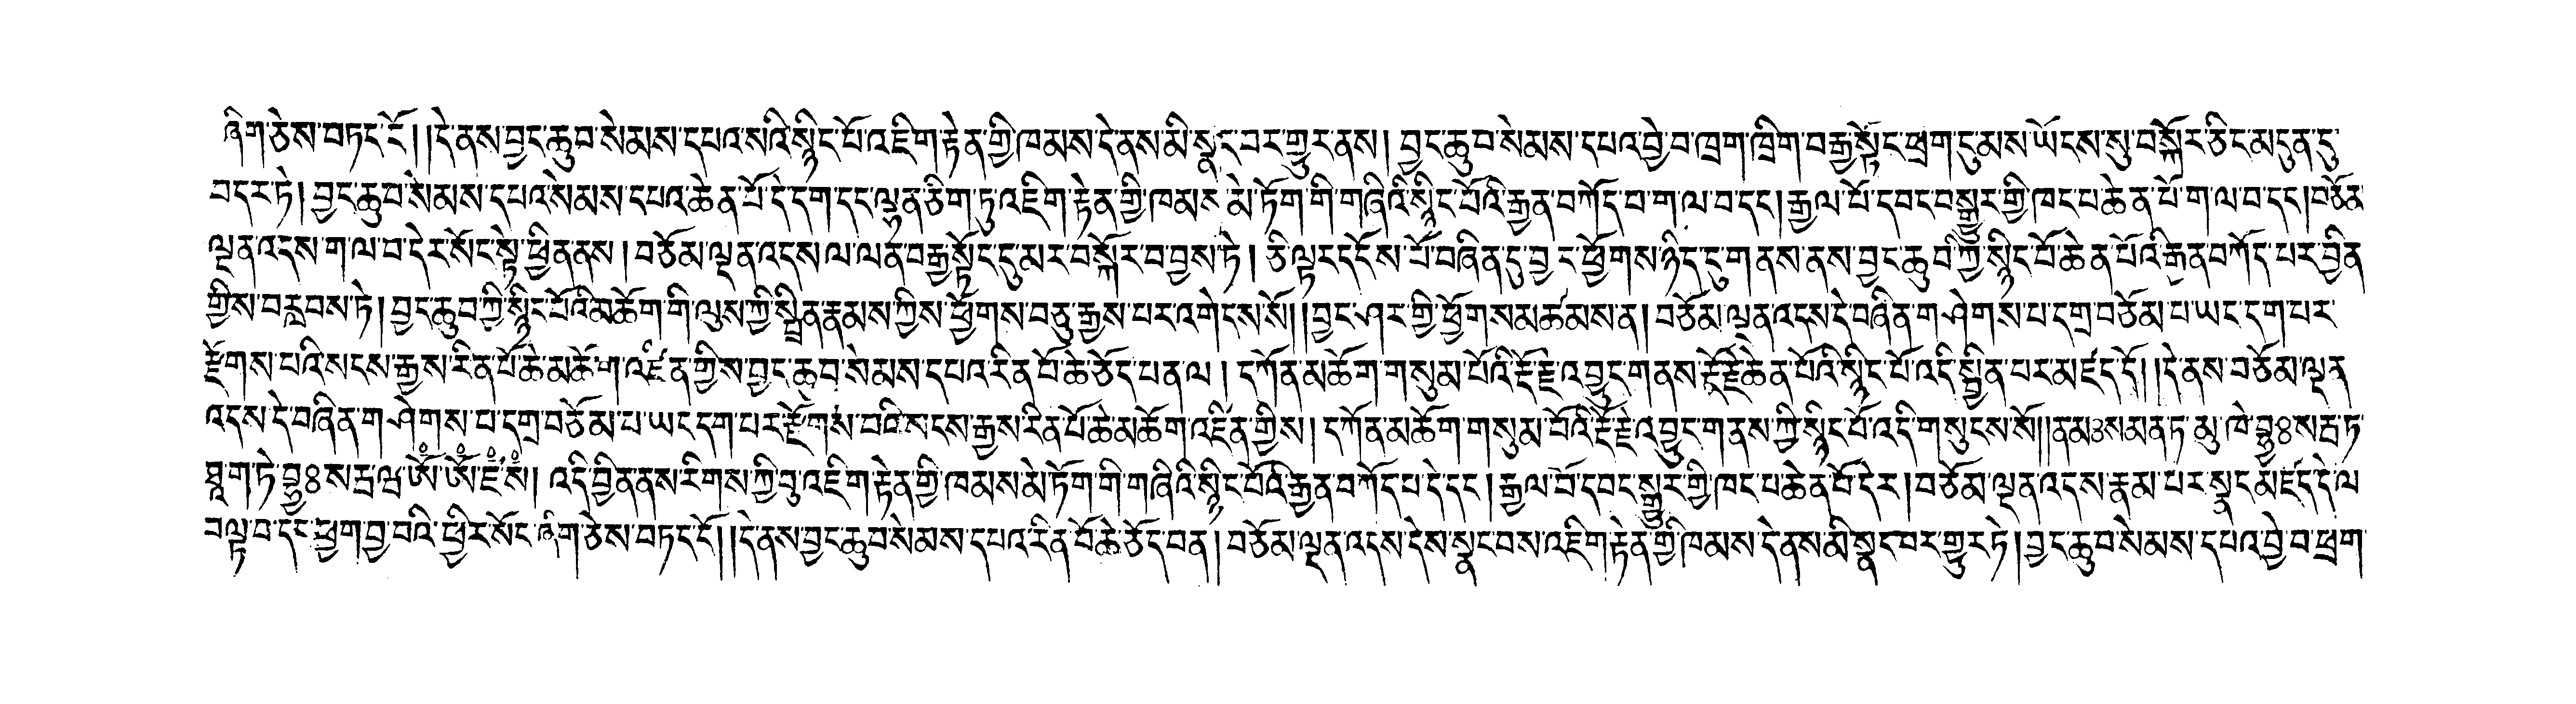 ཞིག་ཅེས་བཏང་ངོ༌། །དེ་ནས་བྱང་ཆུབ་སེམས་དཔའ་སའི་སྙིང་པོ་འཇིག་རྟེན་གྱི་ཁམས་དེ་ནས་མི་སྣང་བར་གྱུར་ནས། བྱང་ཆུབ་སེམས་དཔའ་བྱེ་བ་ཁྲག་ཁྲིག་བརྒྱ་སྟོང་ཕྲག་དུ་མས་ཡོངས་སུ་བསྐོར་ཅིང་མདུན་དུ་
བདར་ཏེ། བྱང་ཆུབ་སེམས་དཔའ་སེམས་དཔའ་ཆེན་པོ་དེ་དག་དང་ལྷན་ཅིག་ཏུ་འཇིག་རྟེན་གྱི་ཁམས་མེ་ཏོག་གི་གཞིའི་སྙིང་པོའི་རྒྱན་བཀོད་པ་ག་ལ་བ་དང༌། རྒྱལ་པོ་དབང་བསྒྱུར་གྱི་ཁང་པ་ཆེན་པོ་ག་ལ་བ་དང༌། བཅོམ་
ལྡན་འདས་ག་ལ་བ་དེར་སོང་སྟེ་ཕྱིན་ནས། བཅོམ་ལྡན་འདས་ལ་ལན་བརྒྱ་སྟོང་དུ་མར་བསྐོར་བ་བྱས་ཏེ། ཅི་ལྟར་དངོས་པོ་བཞིན་དུ་བྱང་ཕྱོགས་ཉིད་དུ་གནས་ནས་བྱང་ཆུབ་ཀྱི་སྙིང་པོ་ཆེན་པོའི་རྒྱན་བཀོད་པར་བྱིན་
གྱིས་བརླབས་ཏེ། བྱང་ཆུབ་ཀྱི་སྙིང་པོའི་མཆོག་གི་ལུས་ཀྱི་སྤྲིན་རྣམས་ཀྱིས་ཕྱོགས་བཅུ་རྒྱས་པར་འགེངས་སོ། །བྱང་ཤར་གྱི་ཕྱོགས་མཚམས་ན། བཅོམ་ལྡན་འདས་དེ་བཞིན་གཤེགས་པ་དགྲ་བཅོམ་པ་ཡང་དག་པར་
རྫོགས་པའི་སངས་རྒྱས་རིན་པོ་ཆེ་མཆོག་འཛིན་གྱིས་བྱང་ཆུབ་སེམས་དཔའ་རིན་པོ་ཆེ་ཅོད་པན་ལ། དཀོན་མཆོག་གསུམ་པོའི་རྡོ་རྗེ་འབྱུང་གནས་རྡོ་རྗེ་ཆེན་པོའི་སྙིང་པོ་འདི་སྦྱིན་པར་མཛད་དོ། །དེ་ནས་བཅོམ་ལྡན་
འདས་དེ་བཞིན་གཤེགས་པ་དགྲ་བཅོམ་པ་ཡང་དག་པར་རྫོགས་པའི་སངས་རྒྱས་རིན་པོ་ཆེ་མཆོག་འཛིན་གྱིས། དཀོན་མཆོག་གསུམ་པོའི་རྡོ་རྗེ་འབྱུང་གནས་ཀྱི་སྙིང་པོ་འདི་གསུངས་སོ། །
བལྟ་བ་དང་ཕྱག་བྱ་བའི་ཕྱིར་སོང་ཞིག་ཅེས་བཏང་ངོ༌། །དེ་ནས་བྱང་ཆུབ་སེམས་དཔའ་རིན་པོ་ཆེ་ཅོད་པན། བཅོམ་ལྡན་འདས་དེས་སྣང་བས་འཇིག་རྟེན་གྱི་ཁམས་དེ་ནས་མི་སྣང་བར་གྱུར་ཏེ། བྱང་ཆུབ་སེམས་དཔའ་བྱེ་བ་ཕྲག་